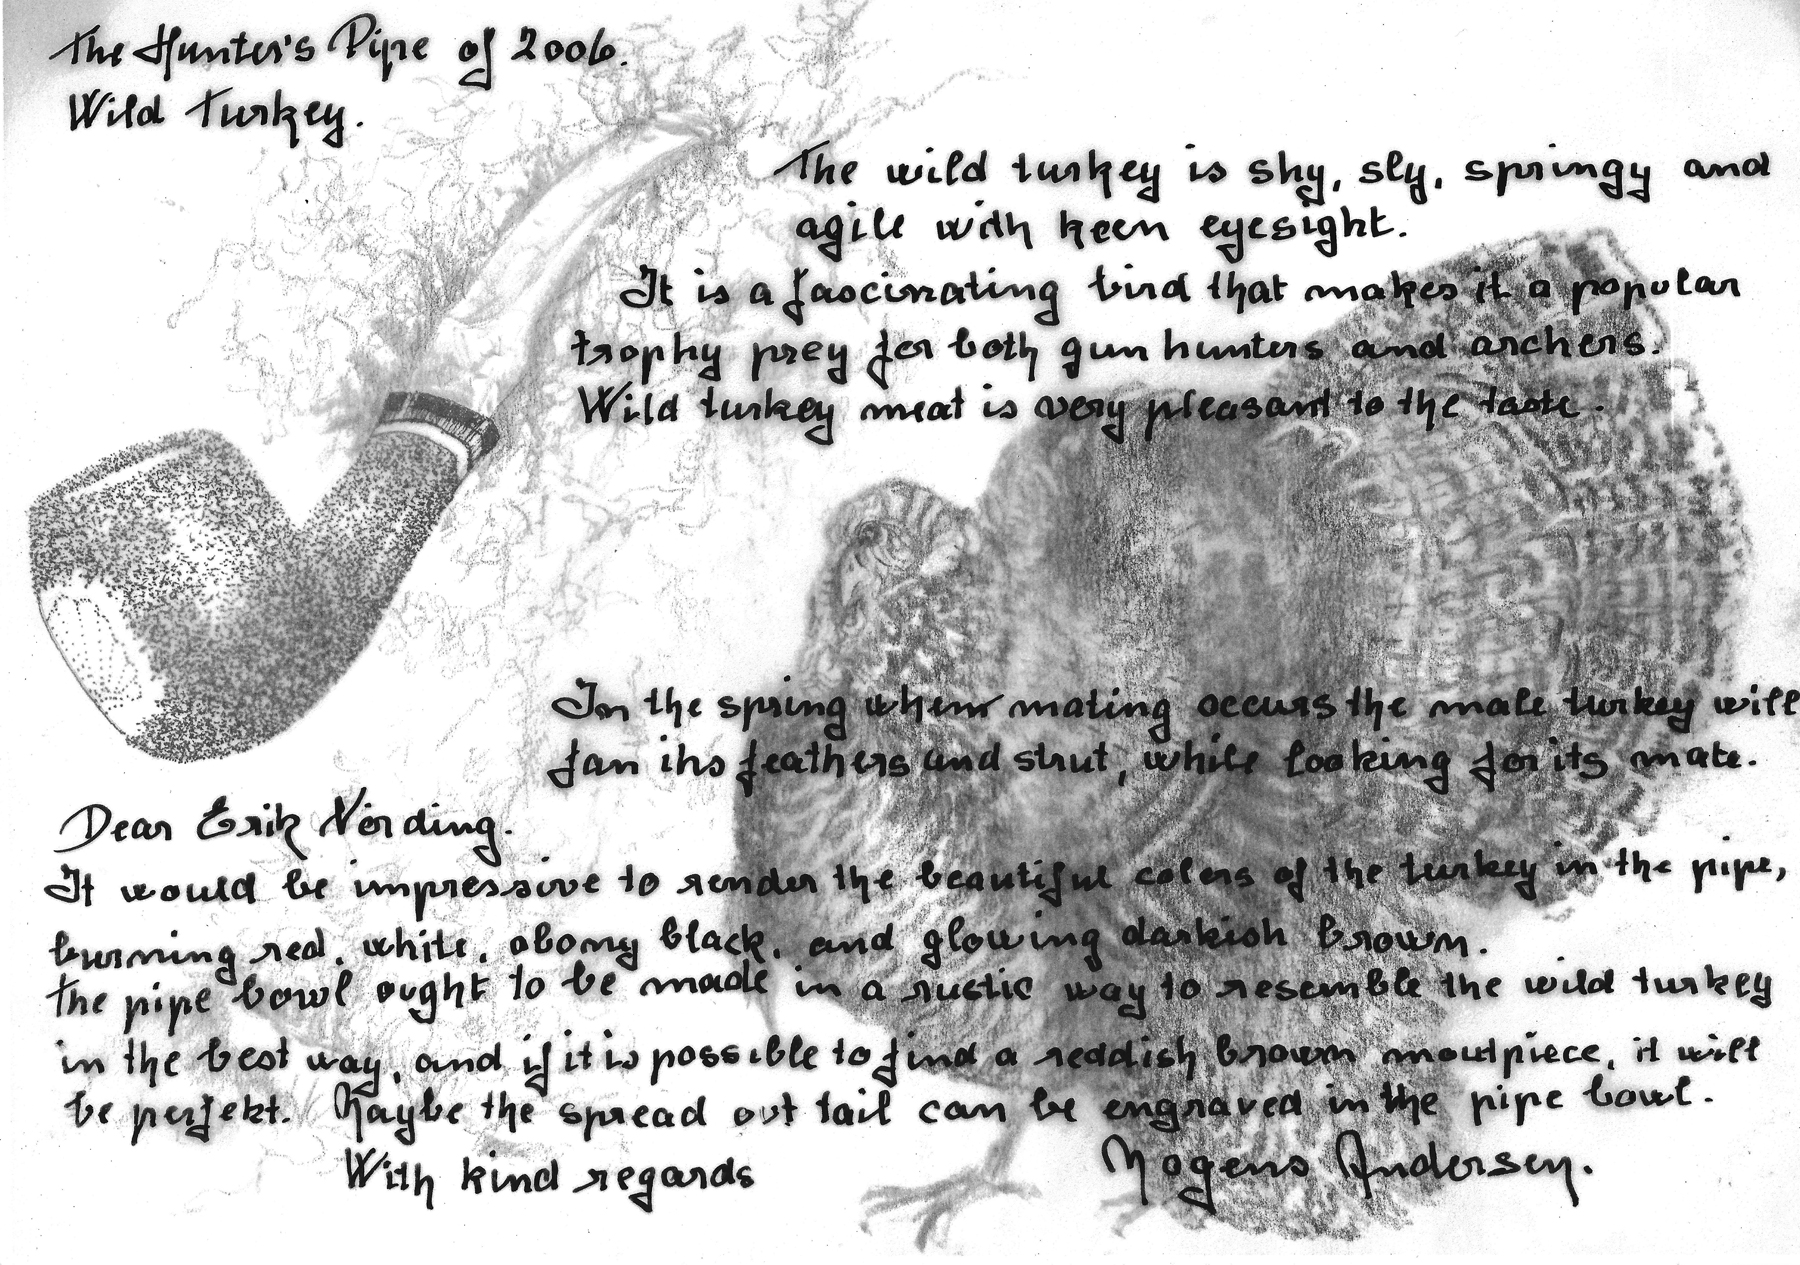 The Hunter's Pipe of 2006.
Wild Turkey.
The wild turkey is shy, sly, springy and
agile with keen eyesight.
It is a fascinating bird that makes it a popular
trophy prey for both gun hunters and archers.
Wild turkey meat is very pleasant to the taste.
In the spring when mating occurs the male turkey will
fan its feathers and strut, while looking for its mate.
Dear Erik Nörding.
It would be impressive to render the beautiful colors of the turkey in the pipe,
burning red, white, obony black, and glowing darkish brown.
The pipe bowl ought to be made in a rustic way to resemble the wild turkey
in the best way, and if it is possible to find a reddish brown moutpiece, it will
be perfekt. Maybe the spread out tail can be engraved in the pipe bowl.
With kind regards Mogens Andersen.